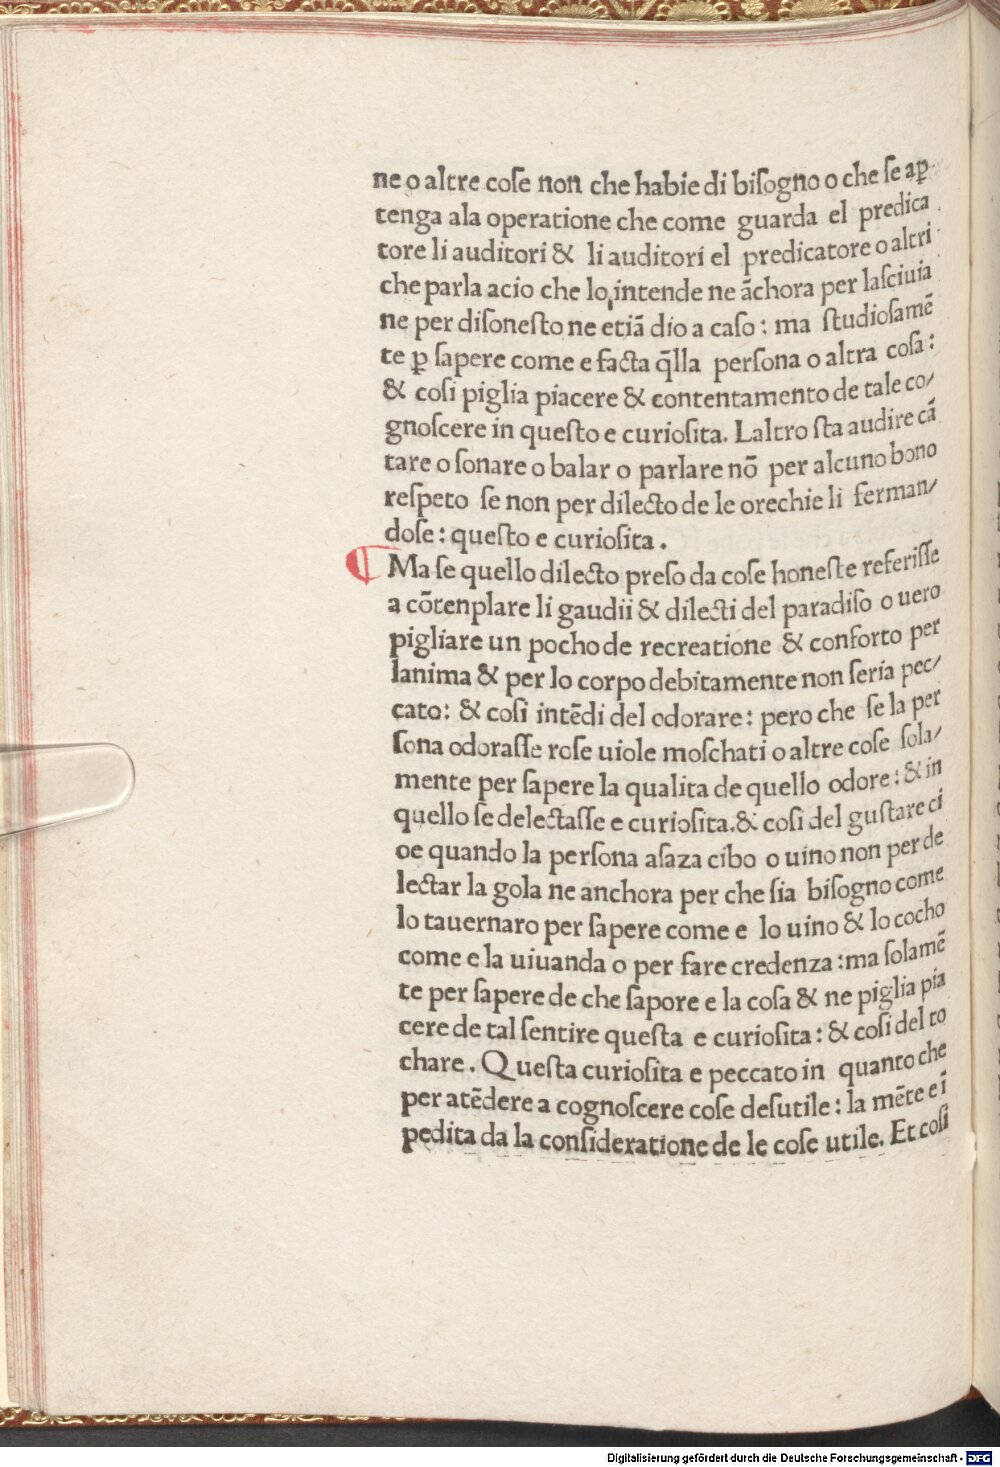 ne o altre cose non che habie di biſogno o che ſe aꝑ
tenga ala operatione che come guarda el predica
tore li auditori & li auditori el predicatore o altri
che parla acio che lo intende ne ãchora per laſciuia
ne per diſoneſto ne etiã dio a caſo : ma ſtudioſamẽ
te ꝑ ſapere come e facta q̃lla perſona o altra coſa :
& coſi piglia piacere & contentamento de tale co/
gnoſcere in queſto e curioſita. Laltro ſta audire cã
tare o ſonare o balar o parlare nõ per alcuno bono
reſpeto ſe non per dilecto de le orechie li ferman/
doſe : queſto e curioſita .
Ma ſe quello dilecto preſo da coſe honeſte referiſſe
a cõtenplare li gaudii & dilecti del paradiſo o uero
pigliare un pocho de recreatione & conforto per
lanima & per lo corpo debitamente non ſeria pec/
cato : & coſi intẽdi del odorare : pero che ſe la per
ſona odoraſſe roſe uiole moſchati o altre coſe ſola/
mente per ſapere la qualita de quello odore : & in
quello ſe delectaſſe e curioſita.& coſi del guſtare ci
oe quando la perſona aſaza cibo o uino non per de
lectar la gola ne anchora per che ſia biſogno come
lo tauernaro per ſapere come e lo uino & lo cocho
come e la uiuanda o per fare credenza : ma ſolamẽ
te per ſapere de che ſapore e la coſa & ne piglia pia
cere de tal ſentire queſta e curioſita : & coſi del to
chare . Queſta curioſita e peccato in quanto che
per atẽdere a cognoſcere coſe deſutile : la mẽte e ĩ
pedita da la conſideratione de le coſe utile. Et coſi
Digitalisierung gefördert durch die Deutsche Forschungsgemeinschaft - DFG